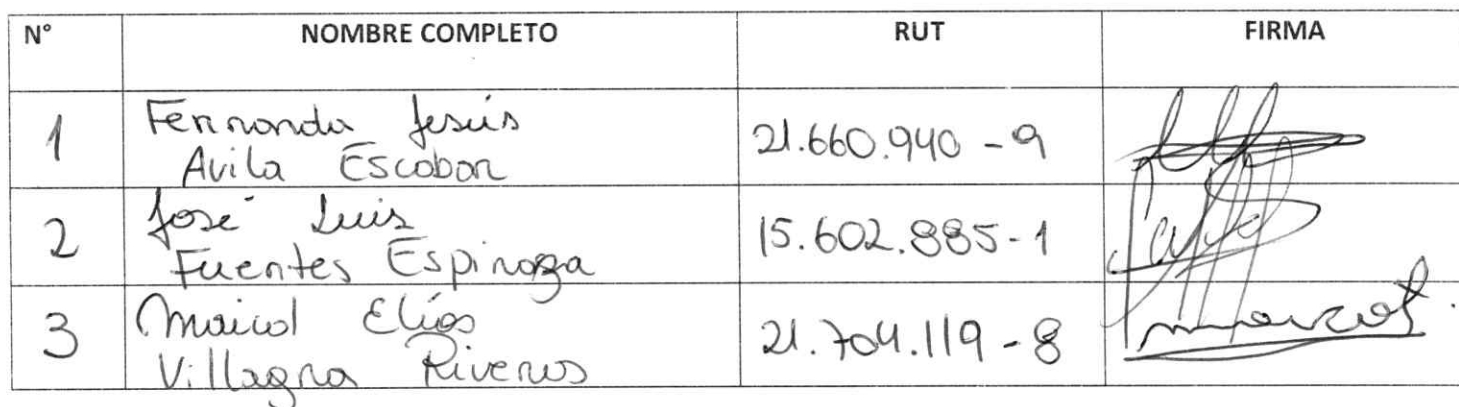 N° NOMBRE COMPLETO RUT FIRMA
1 Fernanda Jesús Avila Escobar 21.660.940-9
2 José Luis Fuentes Espinoza 15.602.885-1
3 Maicol Elías Villagra Riveros 21.704.119-8